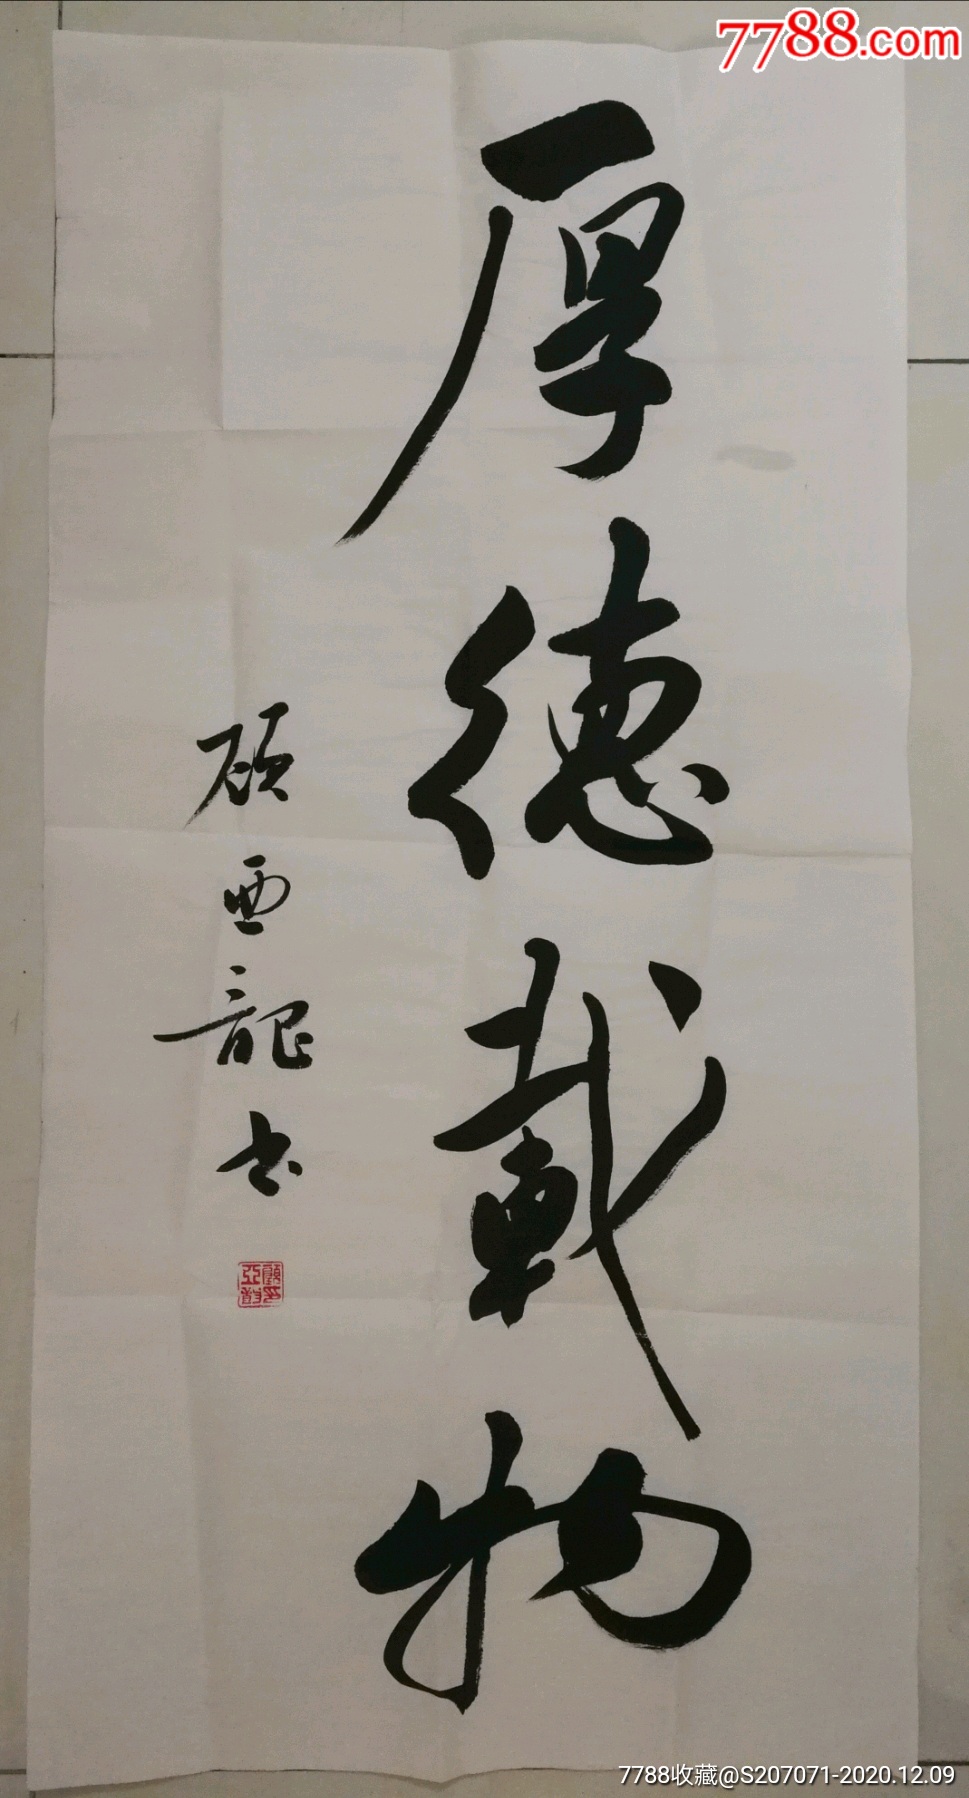 7788.com
厚德載物
顾亚龍书
7788收藏@S207071-2020.12.09